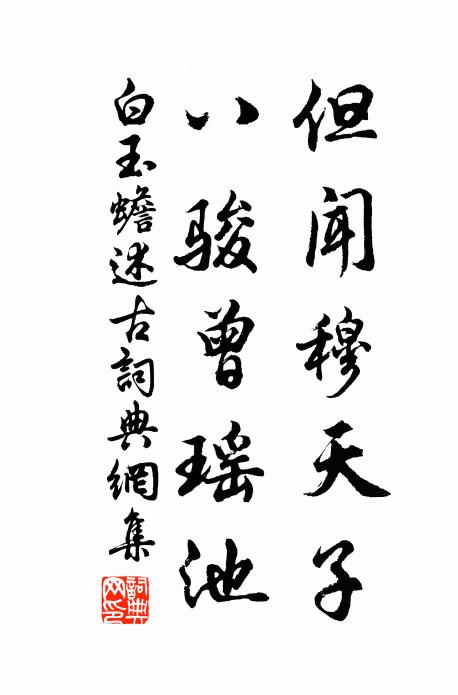 但闻穆天子
八骏曾瑶池
白玉蟾述古詞典網集
詞典网印